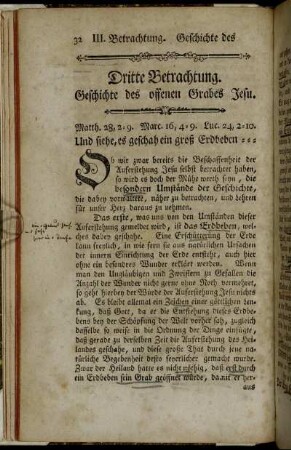 32 III. Betrachtung. Geschichte des
Dritte Betrachtung.
Geschichte des offenen Grabes Jesu.
Matth. 28, 2-9. Marc. 16, 4-9. Luc. 24, 2-10.
Und siehe, es geschah ein groß Erdbeben
Ob wir zwar bereits die Beschaffenheit der
Auferstehung Jesu selbst betrachtet haben,
so wird es doch der Mühe werth seyn, die
besondern Umstände der Geschichte,
die dabey vorwalten, näher zu betrachten, und Lehren
für unser Herz daraus zu nehmen.
Das erste, was uns von den Umständen dieser
Auferstehung gemeldet wird, ist das Erdbeben, wel-
ches dabey geschahe. Eine Erschütterung der Erde
kann freylich, in wie fern sie aus natürlichen Ursachen
der innern Einrichtung der Erde entsteht, auch hier
ohne ein besonders Wunder erklärt werden. Wenn
man den Ungläubigen und Zweiflern zu Gefallen die
Anzahl der Wunder nicht gerne ohne Noth vermehret,
so geht hierbey der Würde der Auferstehung Jesu nichts
ab. Es bleibt allemal ein Zeichen einer göttlichen Len-
kung, daß Gott, da er die Entstehung dieses Erdbe-
bens bey der Schöpfung der Welt vorher sah, zugleich
desselbe so weise in die Ordnung der Dinge einfügte,
daß gerade zu derselben Zeit die Auferstehung des Hei-
landes geschahe, und diese große That durch jene na-
türliche Begebenheit desto feyerlicher gemacht wurde.
Zwar der Heiland hatte es nicht nöthig, daß erst durch
ein Erdbeben sein Grab geöffnet würde, damit er her-
aus